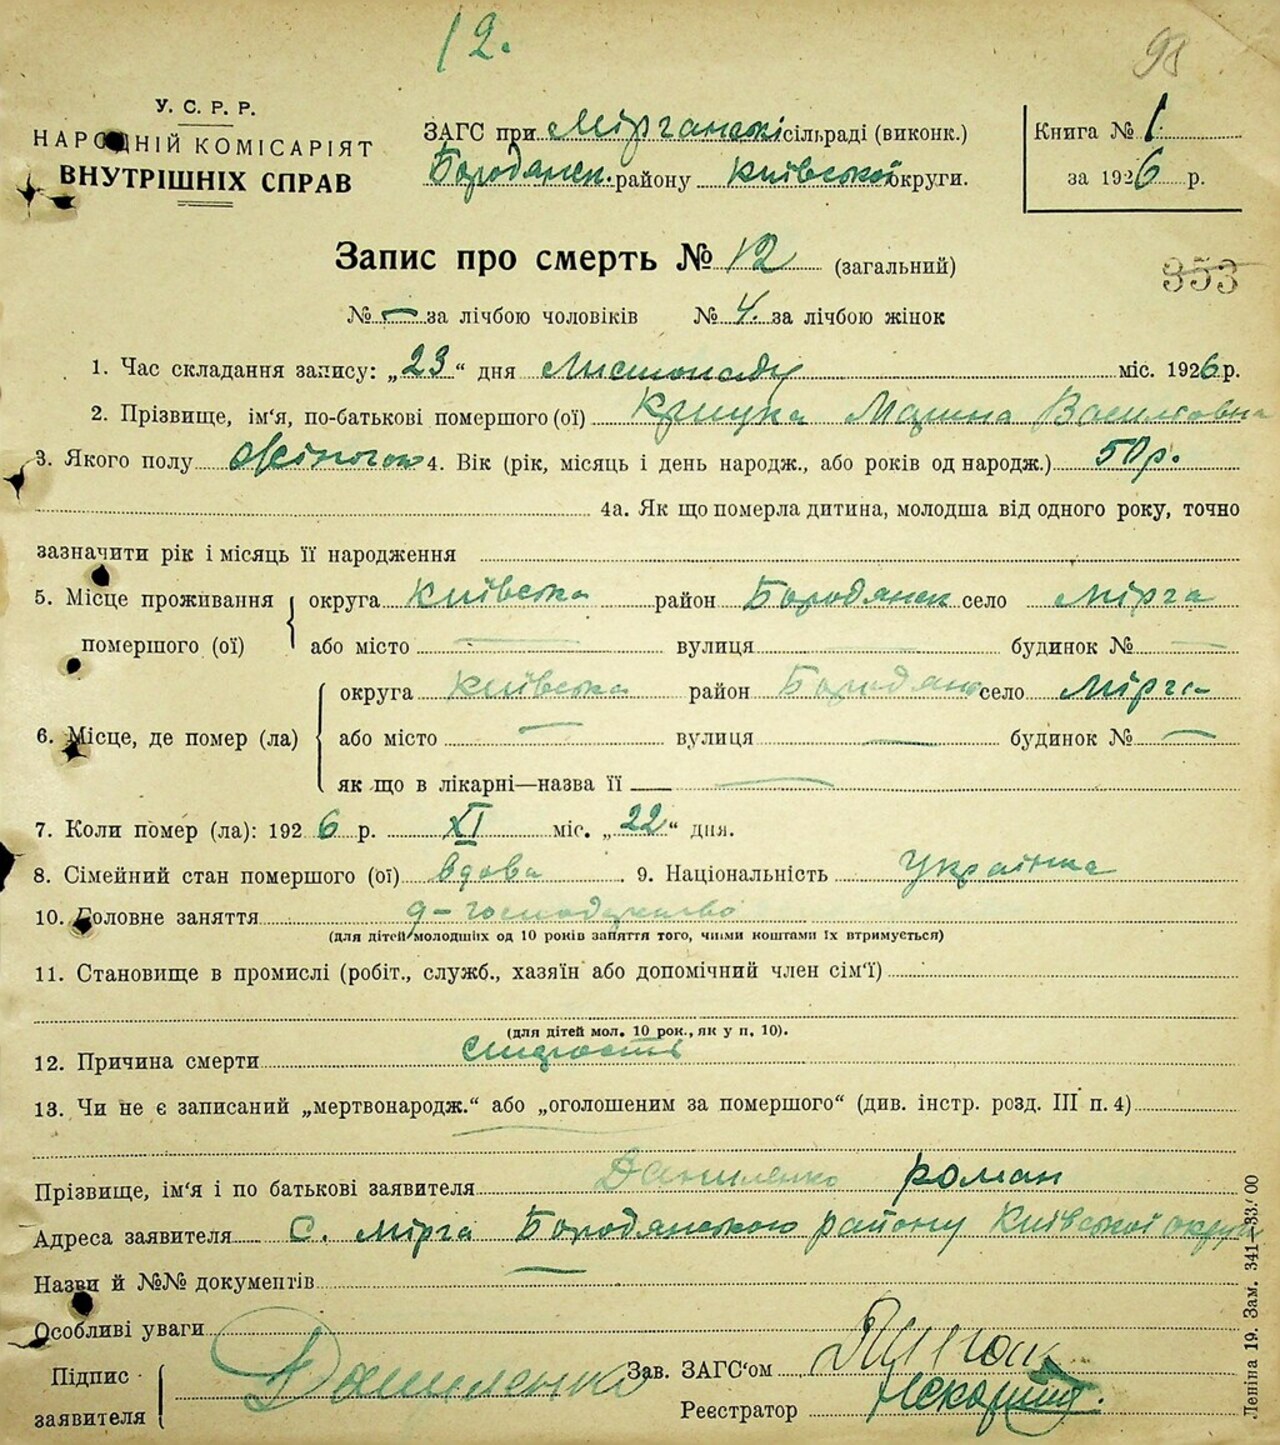 12.
98
У. С. Р. Р.
НАРОДНІЙ КОМІСАРІЯТ
ВНУТРІШНІХ СПРАВ
ЗАГС при Мірчанскі сільраді (виконк.)
Бородянск. району Київської округи.
Книга № 1
за 1926 р.
Запис про смерть № 12 (загальний)
353
№ — за лічбою чоловіків № 4. за лічбою жінок
1. Час складання запису: „23“ дня Листопаду міс. 1926 р.
2. Прізвище, ім'я, по-батькові помершого (ої) Марина Василівна
3. Якого полу Жіночого 4. Вік (рік, місяць і день народж., або років од народж.) 50 р.
4а. Як що померла дитина, молодша від одного року, точно
зазначити рік і місяць її народження
5. Місце проживання помершого (ої) округа Київська район Бородянск село Мірча
або місто — вулиця — будинок № —
6. Місце, де помер (ла) округа Київська район Бородянс село Мірча
або місто — вулиця — будинок № —
як що в лікарні—назва її —
7. Коли помер (ла): 1926 р. XI міс. „22“ дня.
8. Сімейний стан помершого (ої) вдова 9. Національність Українка
10. Головне заняття господарство
(для дітей молодших од 10 років заняття того, чиїми коштами їх втримується)
11. Становище в промислі (робіт., служб., хазяїн або допомічний член сім'ї)
(для дітей мол. 10 рок., як у п. 10).
12. Причина смерти
13. Чи не є записаний „мертвонародж.“ або „оголошеним за помершого“ (див. інстр. розд. III п. 4)
Прізвище, ім'я і по батькові заявителя Даниленко Роман
Адреса заявителя С. Мірча Бородянського району Київської округи
Назви й №№ документів —
Особливі уваги
Підпис заявителя Даниленко
Зав. ЗАГС'ом
Реєстратор
Леніна 19. Зам. 341—33.